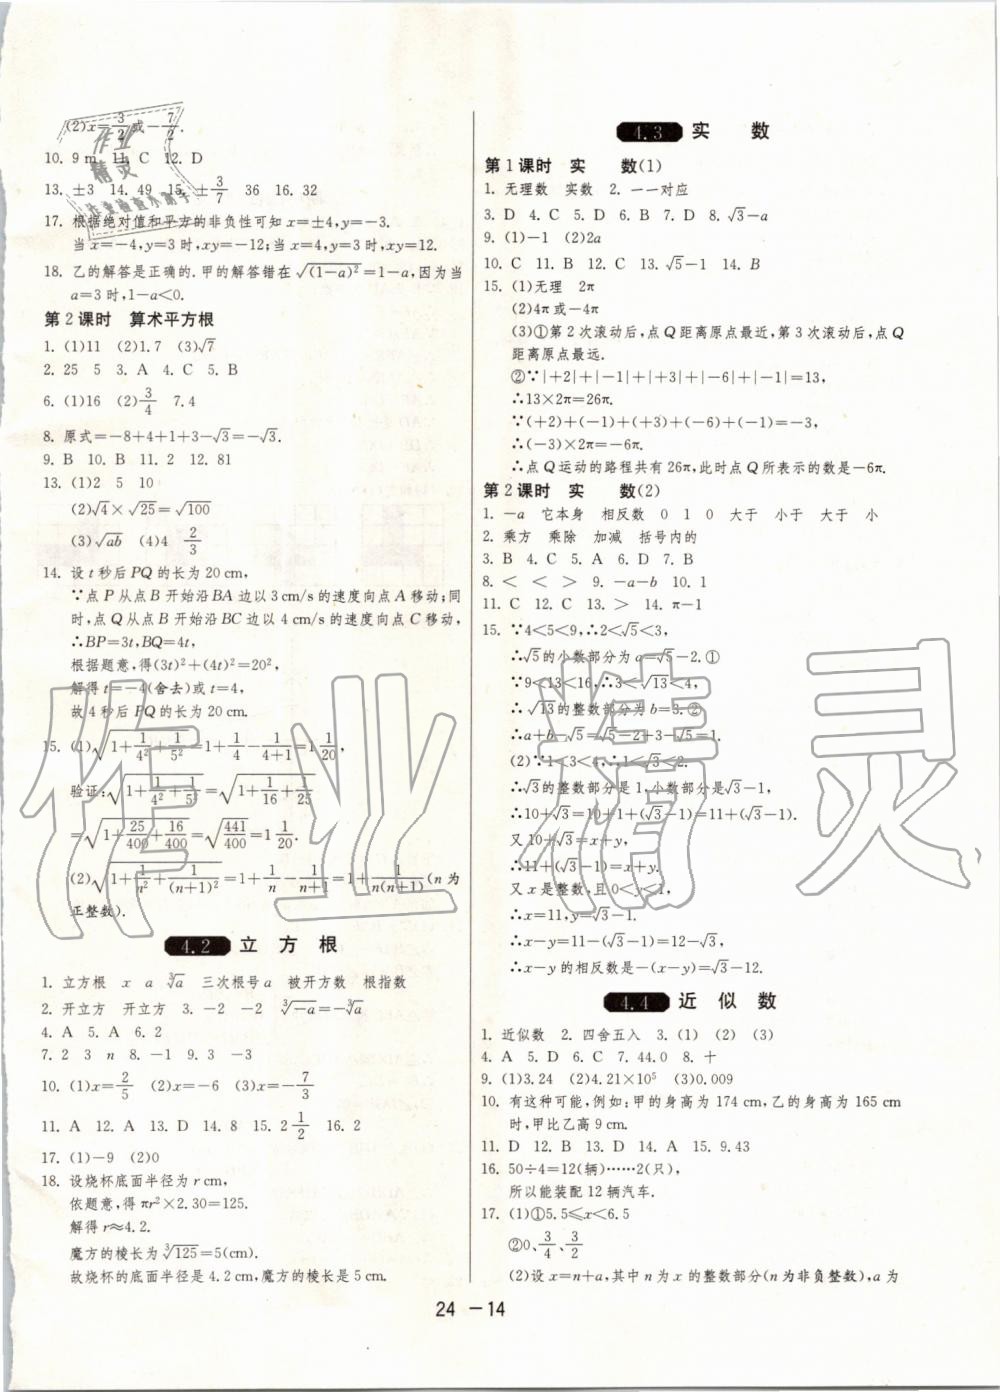 (2)x=3/2或-7/2.
10. 9 m  11. C  12. D
13. ±3  14. 49  15. ±3/7  36  16. 32
17. 根据绝对值和平方的非负性可知 x=±4,y=-3.
当 x=-4,y=3 时,xy=-12;当 x=4,y=3 时,xy=12.
18. 乙的解答是正确的.甲的解答错在 √(1-a)²=1-a,因为当
a=3 时,1-a<0.
第 2 课时 算术平方根
1. (1)11  (2)1.7  (3)√7
2. 25  5  3. A  4. C  5. B
6. (1)16  (2)3/4  7. 4
8. 原式=-8+4+1+3-√3=-√3.
9. B  10. B  11. 2  12. 81
13. (1)2  5  10
(2)√4×√25=√100
(3)√ab  (4)4  2/3
14. 设 t 秒后 PQ 的长为 20 cm,
∵点 P 从点 B 开始沿 BA 边以 3 cm/s 的速度向点 A 移动;同
时,点 Q 从点 B 开始沿 BC 边以 4 cm/s 的速度向点 C 移动,
∴BP=3t,BQ=4t,
根据题意,得(3t)²+(4t)²=20²,
解得 t=-4(舍去)或 t=4,
故 4 秒后 PQ 的长为 20 cm.
15. (1)√(1+1/4²+1/5²)=1+1/4-1/(4+1)=1 1/20,
验证:√(1+1/4²+1/5²)=√(1+1/16+1/25)
=√(1+25/400+16/400)=√(441/400)=1 1/20.
(2)√(1+1/n²+1/(n+1)²)=1+1/n-1/(n+1)=1+1/(n(n+1))(n 为
正整数).
4.2 立方根
1. 立方根  x  a  ³√a  三次根号 a  被开方数  根指数
2. 开立方  开立方  3. -2  -2  ³√-a=-³√a
4. A  5. A  6. 2
7. 2  3  n  8. -1  9. 3  -3
10. (1)x=2/5  (2)x=-6  (3)x=-7/3
11. A  12. A  13. D  14. 8  15. 2 1/2  16. 2
17. (1)-9  (2)0
18. 设烧杯底面半径为 r cm,
依题意,得 πr²×2.30=125.
解得 r≈4.2.
魔方的棱长为 ³√125=5(cm).
故烧杯的底面半径是 4.2 cm,魔方的棱长是 5 cm.
4.3 实 数
第 1 课时 实 数(1)
1. 无理数  实数  2. 一一对应
3. D  4. C  5. C  6. B  7. D  8. √3-a
9. (1)-1  (2)2a
10. C  11. B  12. C  13. √5-1  14. B
15. (1)无理  2π
(2)4π 或-4π
(3)①第 2 次滚动后,点 Q 距离原点最近,第 3 次滚动后,点 Q
距离原点最远.
②∵|+2|+|-1|+|+3|+|-6|+|-1|=13,
∴13×2π=26π.
∵(+2)+(-1)+(+3)+(-6)+(-1)=-3,
∴(-3)×2π=-6π.
∴点 Q 运动的路程共有 26π,此时点 Q 所表示的数是-6π.
第 2 课时 实 数(2)
1. -a  它本身  相反数  0  1  0  大于  小于  大于  小
2. 乘方  乘除  加减  括号内的
3. B  4. C  5. A  6. D  7. B
8. <  <  >  9. -a-b  10. 1
11. C  12. C  13. >  14. π-1
15. ∵4<5<9,∴2<√5<3,
∴√5的小数部分为 a=√5-2.①
∵9<13<16,∴3<√13<4,
∴√13的整数部分为 b=3.②
∴a+b-√5=√5-2+3-√5=1.
(2)∵1<3<4,∴1<√3<2.
∴√3的整数部分是 1,小数部分是√3-1,
∴10+√3=10+1+(√3-1)=11+(√3-1).
又 10+√3=x+y,
∴11+(√3-1)=x+y.
又 x 是整数,且 0<y<1,
∴x=11,y=√3-1.
∴x-y=11-(√3-1)=12-√3,
∴x-y 的相反数是-(x-y)=√3-12.
4.4 近似数
1. 近似数  2. 四舍五入  3. (1)  (2)  (3)
4. A  5. D  6. C  7. 44.0  8. 十
9. (1)3.24  (2)4.21×10⁵  (3)0.009
10. 有这种可能,例如:甲的身高为 174 cm,乙的身高为 165 cm
时,甲比乙高 9 cm.
11. D  12. B  13. D  14. A  15. 9.43
16. 50÷4=12(辆)……2(只),
所以能装配 12 辆汽车.
17. (1)①5.5≤x<6.5
②0、3/4、3/2
(2)设 x=n+a,其中 n 为 x 的整数部分(n 为非负整数),a 为
24 -14
作业精灵